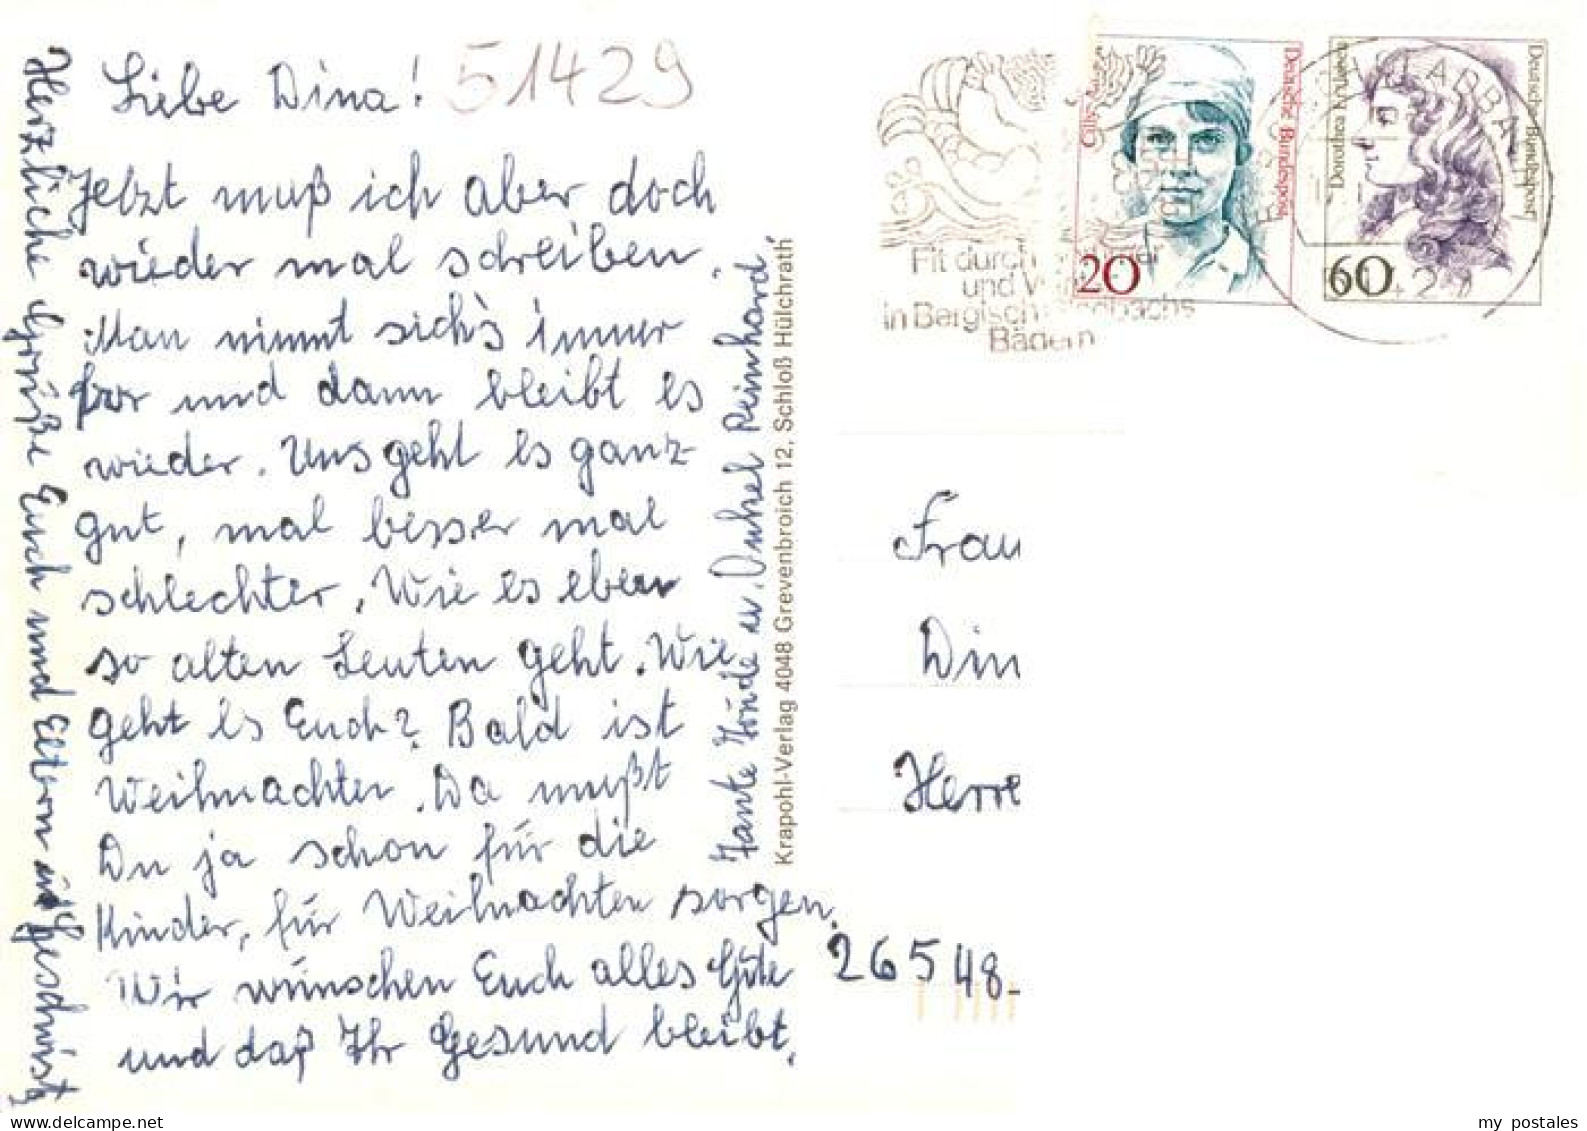 Liebe Dina! 51429
Jetzt muß ich aber doch
wieder mal schreiben.
Man nimmt sich's immer
vor und dann bleibt es
wieder. Uns geht es ganz
gut, mal besser mal
schlechter. Wie es eben
so alten Leuten geht. Wie
geht es Euch? Bald ist
Weihnachten. Da mußt
Du ja schon für die
Kinder, für Weihnachten sorgen.
Wir wünschen Euch alles Gute
und daß Ihr Gesund bleibt.
Herzliche Grüße Euch und Eltern und Geschwist.
Tante u. Onkel Reinhard
Krapohl-Verlag 4048 Grevenbroich 12, Schloß Hülchrath
Fit durch
und
in Bergisch Gladbachs
Bädern
Cilly
Deutsche Bundespost
20
Dorothea Erxleben
Deutsche Bundespost
60
Frau
Din
Herre
26548-
my postales